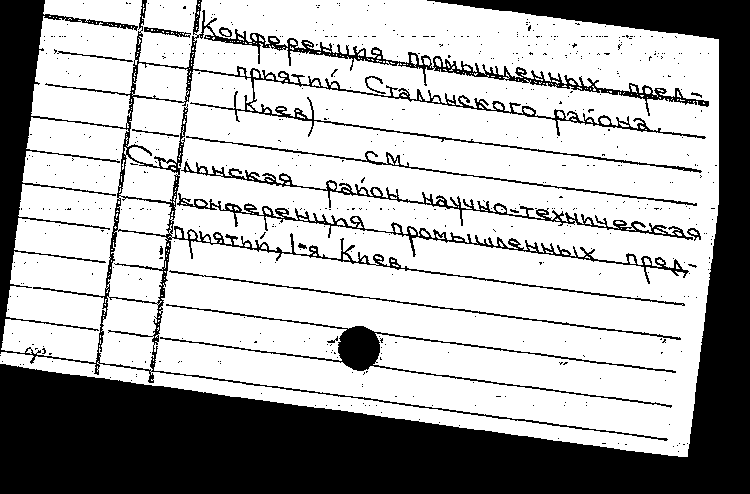 Конференция промышленных пред-
приятий Сталинского района.
(Киев)
см.
Сталинская район научно-техническая
конференция промышленных пред-
приятий, 1-я. Киев.